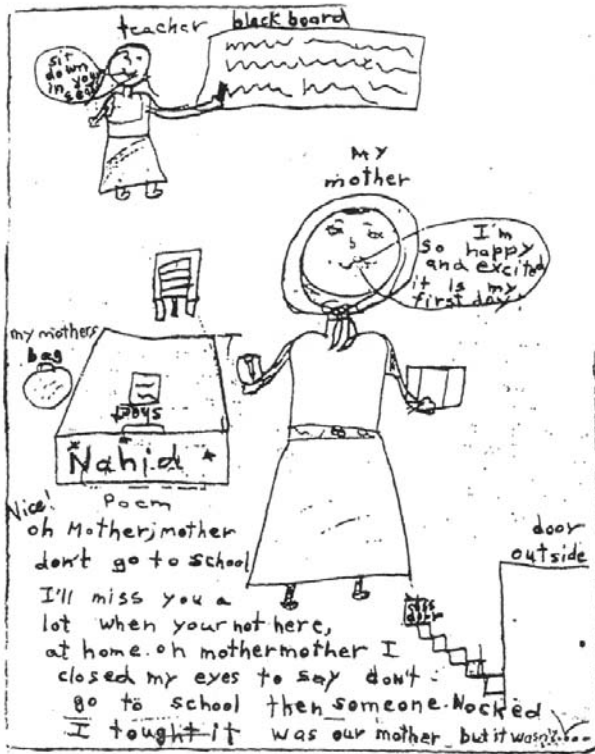 teacher
black board
sit
down
in your
seat
My
mother
I'm
so happy
and excited
it is my
first day!
my mothers
bag
Nahid
Poem
Nice!
oh Mother,mother
don't go to school
I'll miss you a
lot when your not here,
at home. oh mothermother I
closed my eyes to say don't
go to school then someone Nocked
I tought it was our mother but it wasn't.....
door
outside
door